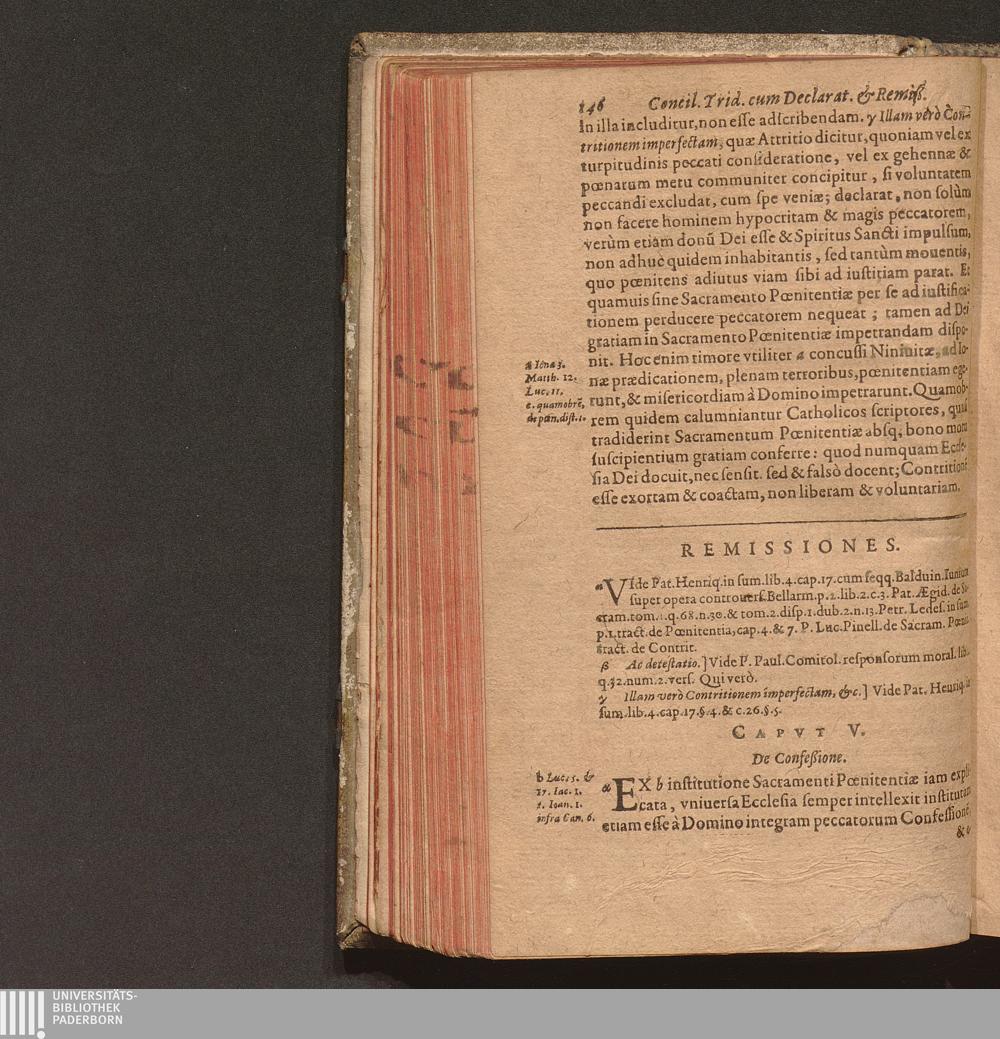 146 Concil. Trid. cum Declarat. & Remiss.
in illa includitur, non esse adscribendam. γ Illam verò Con-
tritionem imperfectam, quæ Attritio dicitur, quoniam vel ex
turpitudinis peccati consideratione, vel ex gehennæ &
pœnarum metu communiter concipitur, si voluntatem
peccandi excludat, cum spe veniæ; declarat, non solùm
non facere hominem hypocritam & magis peccatorem,
verùm etiam donũ Dei esse & Spiritus Sancti impulsum,
non adhuc quidem inhabitantis, sed tantùm mouentis,
quo pœnitens adiutus viam sibi ad iustitiam parat. Et
quamuis sine Sacramento Pœnitentiæ per se ad iustifica-
tionem perducere peccatorem nequeat; tamen ad Dei
gratiam in Sacramento Pœnitentiæ impetrandam dispo-
nit. Hoc enim timore vtiliter a concussi Niniuitæ, ad Io-
næ prædicationem, plenam terroribus, pœnitentiam ege-
runt, & misericordiam à Domino impetrarunt. Quamob-
rem quidem calumniantur Catholicos scriptores, quasi
tradiderint Sacramentum Pœnitentiæ absq; bono motu
suscipientium gratiam conferre: quod numquam Eccle-
sia Dei docuit, nec sensit. sed & falsò docent; Contritionẽ
esse extortam & coactam, non liberam & voluntariam.
a Iona 3.
Matth. 12.
Luc. 11.
c. quamobrẽ,
de pœn. dist. 1.
REMISSIONES.
α VIde Pat. Henriq. in sum. lib. 4. cap. 17. cum seqq. Balduin. Iunium
super opera controuers. Bellarm. p. 2. lib. 2. c. 3. Pat. Ægid. de Sa-
cram. tom. 1. q. 68. n. 30. & tom. 2. disp. 1. dub. 2. n. 13. Petr. Ledes. in sum.
p. 1. tract. de Pœnitentia, cap. 4. & 7. P. Luc. Pinell. de Sacram. Pœnit.
tract. de Contrit.
β Ac detestatio.] Vide P. Paul. Comitol. responsorum moral. lib.
q. 32. num. 2. vers. Qui verò.
γ Illam verò Contritionem imperfectam, &c.] Vide Pat. Henriq. in
sum. lib. 4. cap. 17. §. 4. & c. 26. §. 5.
CAPVT V.
De Confessione.
α EX b institutione Sacramenti Pœnitentiæ iam expli-
cata, vniuersa Ecclesia semper intellexit institutam
etiam esse à Domino integram peccatorum Confessionẽ,
b Luc. 5. &
17. Iac. 1.
1. Ioan. 1.
infra Can. 6.
UNIVERSITÄTS-
BIBLIOTHEK
PADERBORN